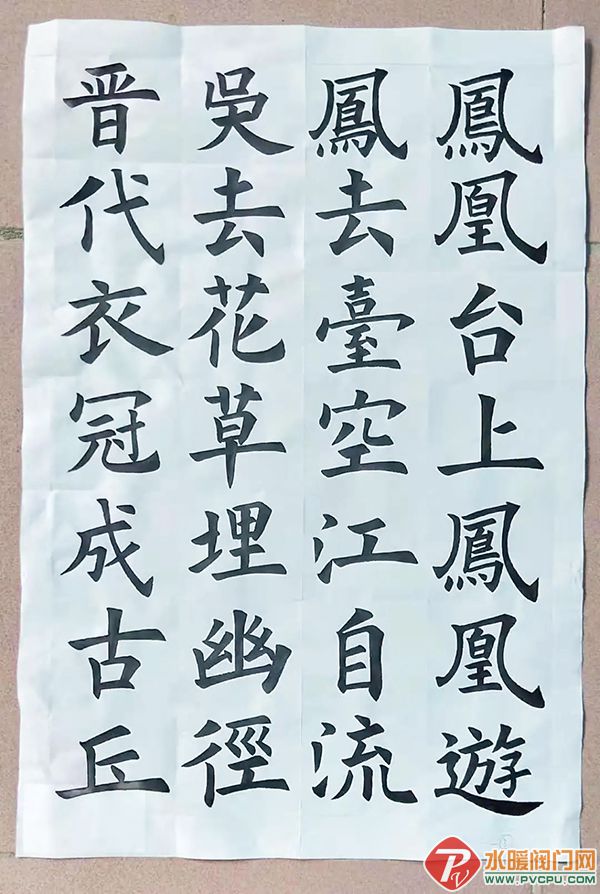 鳳凰台上鳳凰遊
鳳去臺空江自流
吳去花草埋幽徑
晋代衣冠成古丘
PV
水暖阀门网
WWW.PVCPU.COM